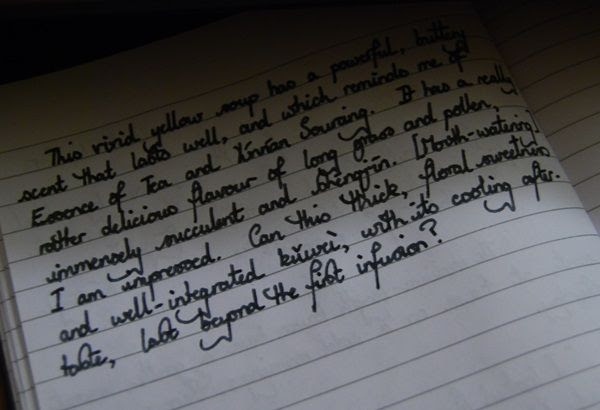 This vivid yellow soup has a powerful, buttery
scent that lasts well, and which reminds me of
Essence of Tea and Xinran Sourcing. It has a really
rather delicious flavour of long grass and pollen,
immensely succulent and shengjin. [Mouth-watering]
I am impressed. Can this thick, floral sweetness
and well-integrated kuwei, with its cooling after-
taste, last beyond the first infusion?